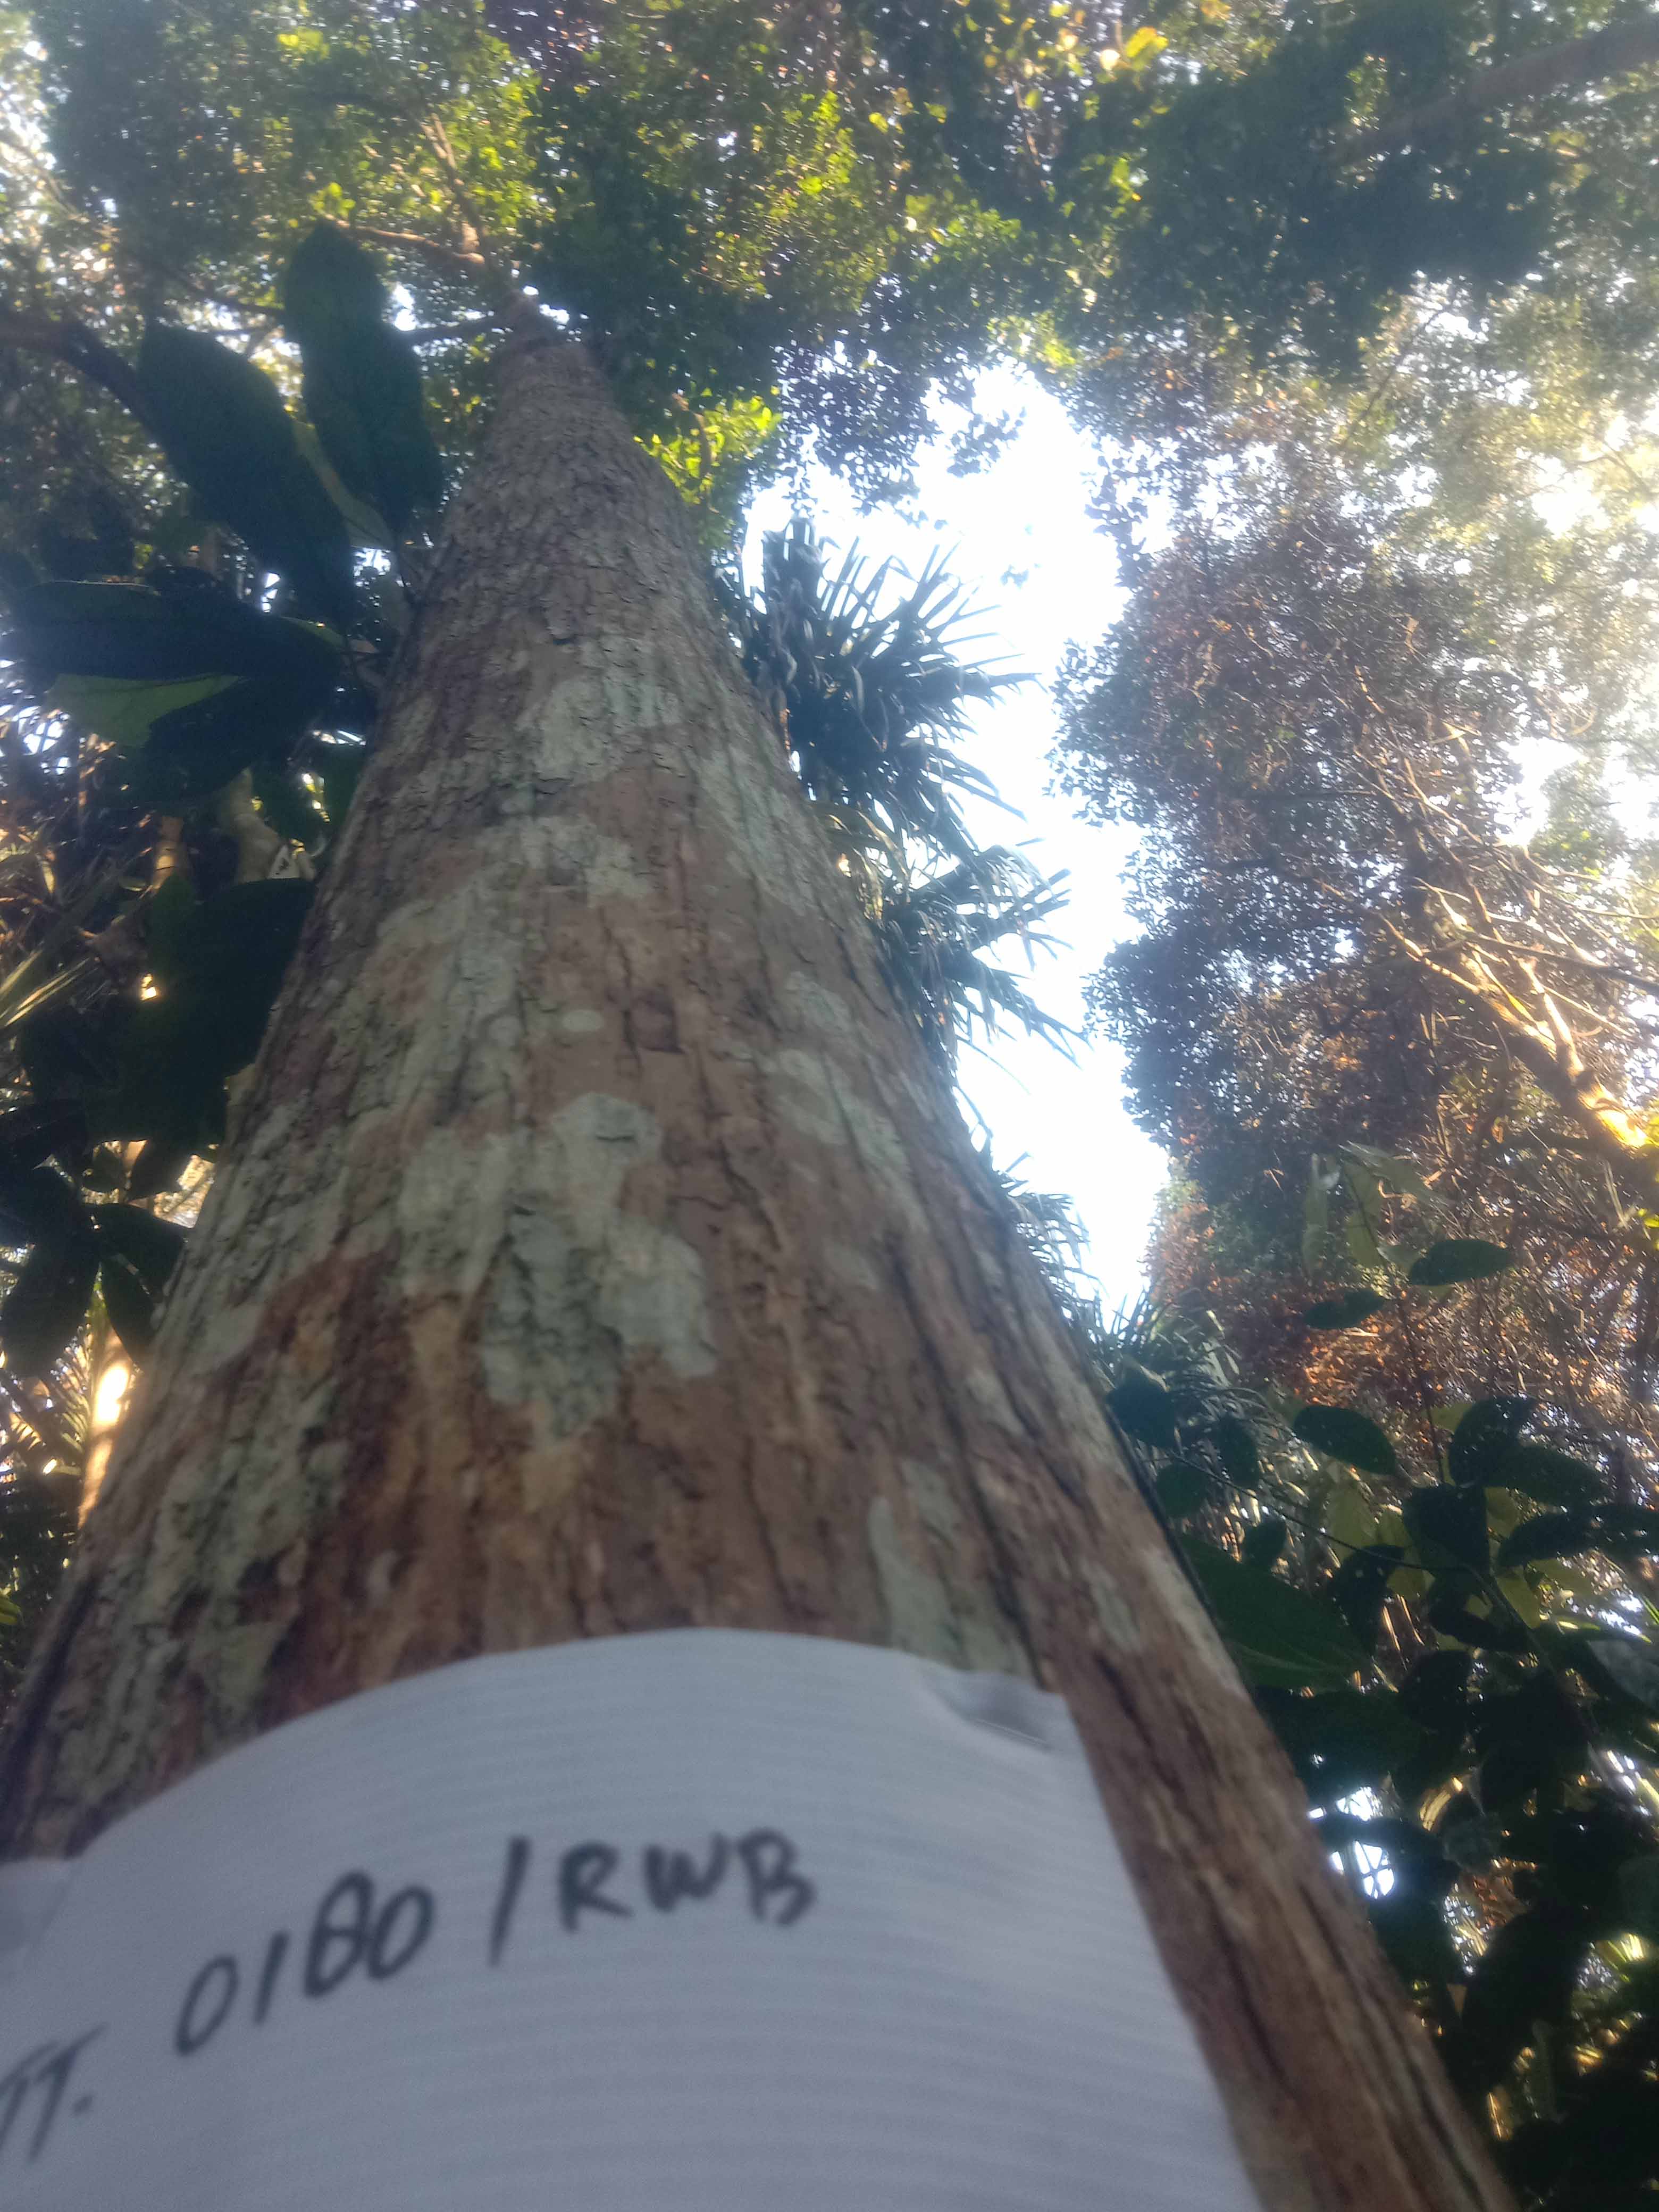 TT. 0180/RWB